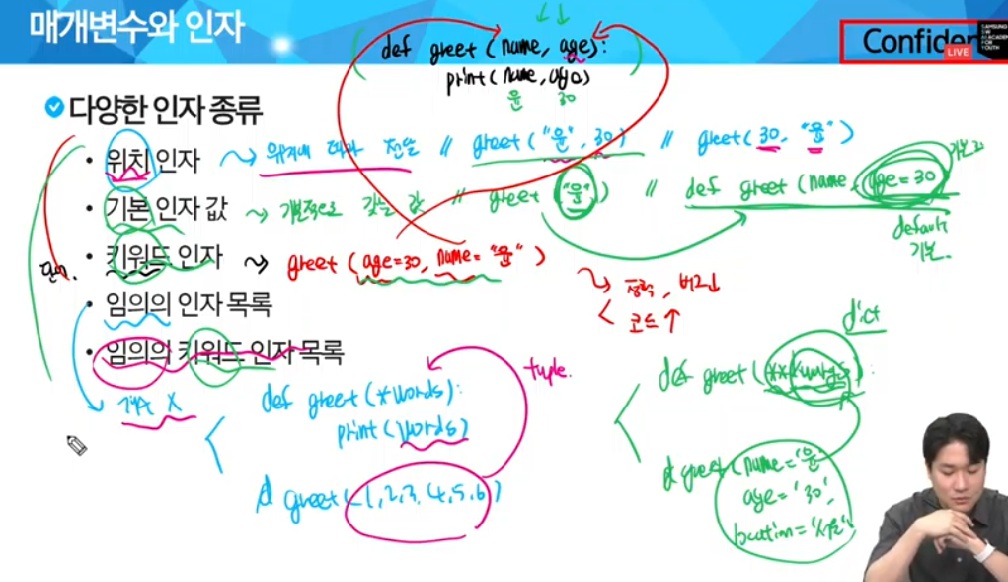 매개변수와 인자
Confiden
LIVE
SAMSUNG
SW
ACADEMY
FOR
YOUTH
def greet (name, age):
print(name, age)
윤 30
다양한 인자 종류
• 위치 인자 위치에 따라 전달 // greet("윤", 30) // greet(30, "윤")
• 기본 인자 값 기본적으로 갖는 값 // greet("윤") // def greet (name, age=30
default
기본.
• 키워드 인자 greet (age=30, name="윤")
코드↑
• 임의의 인자 목록
• 임의의 키워드 인자 목록
개수 X
def greet(*words):
print(words)
tuple.
greet(1,2,3,4,5,6)
dict
def greet(**kwargs):
greet(name='윤'
age='30',
='서울'